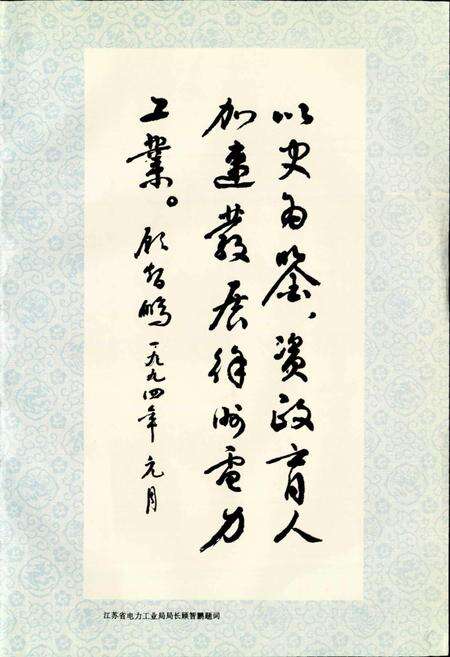 以史为鉴，资政育人
加速發展徐州電力
工業。
顾智鹏 一九九四年 元月
江苏省电力工业局局长顾智鹏题词